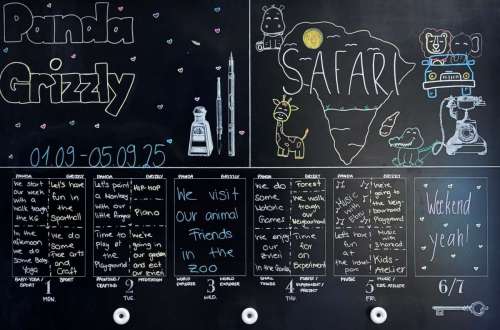 Panda
Grizzly
01.09-05.09.25
SAFARI
PANDA GRIZZLY
We start
our week
with a
walk through
the KG
In the
afternoon
we do
some Baby
Yoga
Let's have
fun in
the
Sporthall
We do
Some
Free Arts
and
Craft
BABY-YOGA/
SPORT
SPORT
1
MON.
PANDA GRIZZLY
Let's paint
a Monkey
with our
little Fingers
Time to
Play at
the
Playground
HIP-HOP
Piano
We're
going in
our garden
and eat
our even
PAINTING/
CRAFTING
MEDITATION
2
TUE.
PANDA GRIZZLY
We visit
our animal
Friends
in the
Zoo
WORLD
EXPLORER
WORLD
EXPLORER
3
WED.
PANDA GRIZZLY
We do
Some
Table
Games
We enjoy
our
time
in the Garden
Forest
We walk
through
our
Neighborhood
Time
for
an
Experiment
SMALL
TOWN
FOREST/
EXPERIMENT/
PROJECT
4
THU.
PANDA GRIZZLY
Music
with
Eric
Let's
have
fun
at the indoor
park
We're
going to
the Neigh-
borhood
Playground
Music
with
Shahrad
Kids-
Atelier
MUSIC
MUSIC/
KIDS-ATELIER
5
FRI.
Weekend
yeah
6/7